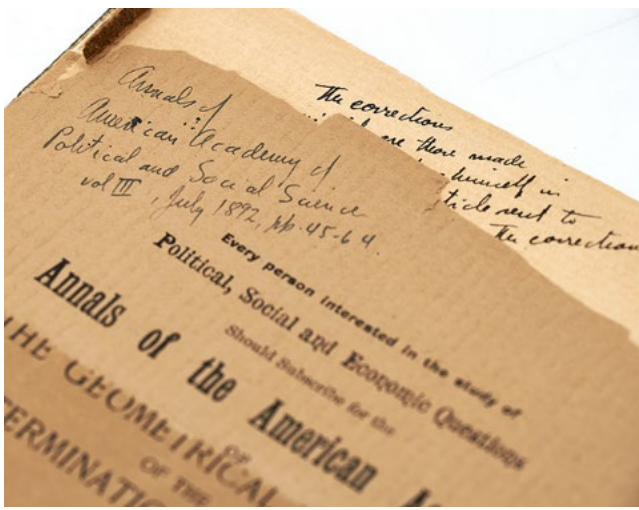 Annals of
American Academy of
Political and Social Science
vol III, July 1892, pp. 45-64.
The corrections
are those made
himself in
ticle sent to
The correction
Every person interested in the study of
Political, Social and Economic Questions
Should Subscribe for the
Annals of the American A
THE GEOMETRICAL
OF THE
ERMINATIO